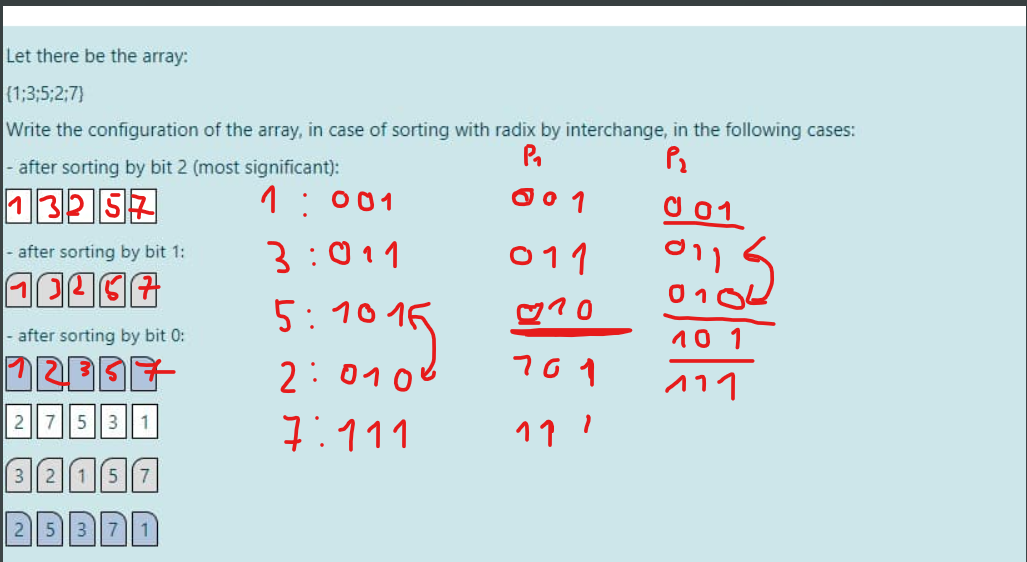 Let there be the array:
{1;3;5;2;7}
Write the configuration of the array, in case of sorting with radix by interchange, in the following cases:
- after sorting by bit 2 (most significant):
1 3 2 5 7
- after sorting by bit 1:
1 3 2 5 7
- after sorting by bit 0:
1 2 3 5 7
2 7 5 3 1
3 2 1 5 7
2 5 3 7 1
1 : 001
3 : 011
5 : 101
2 : 010
7 : 111
P1
001
011
010
101
111
P2
001
011
010
101
111